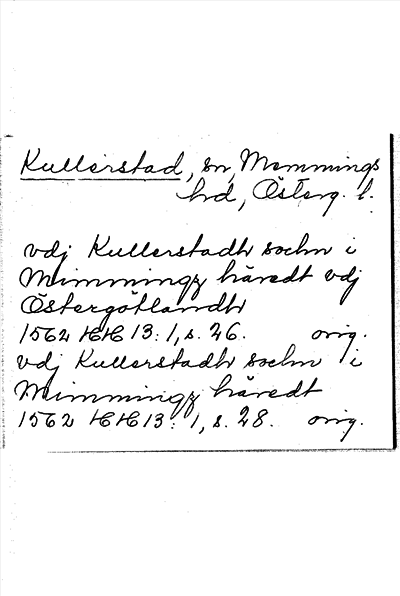 Kullerstad, sn, Memmings
hd, Österg. l.
vdj Kullerstadh sochn i
Mimmingz häredt vdj
Östergötlandh
1562 HH 13:1, s. 26. orig.
vdj Kullerstadh sochn i
Mimmingz häredt
1562 HH 13:1, s. 28. orig.